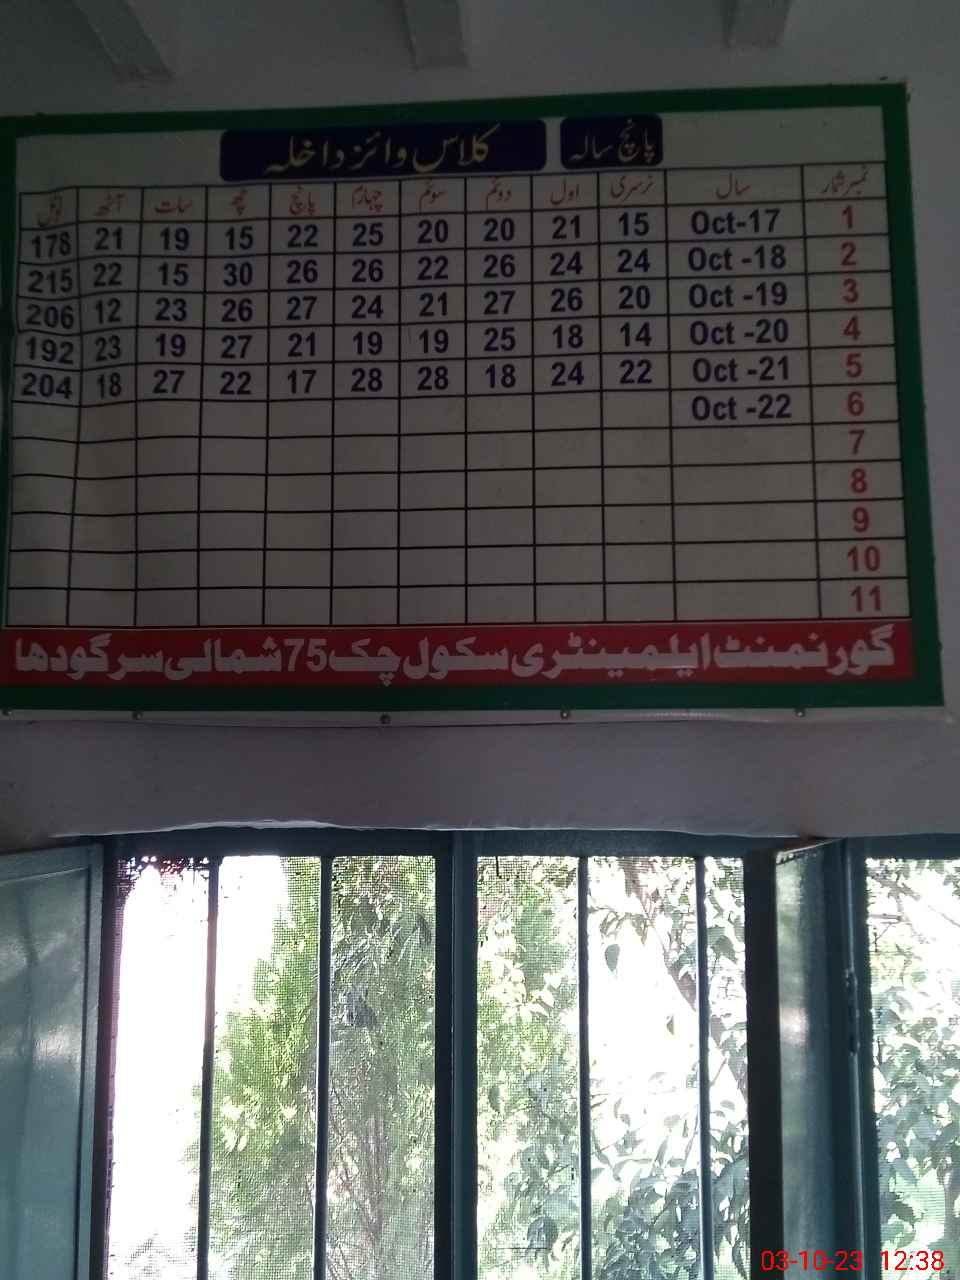 پانچ سالہ کلاس وائز داخلہ
نمبر شمار سال نرسری اول دوئم سوئم چہارم پانچ چھ سات آٹھ ٹوٹل
1 Oct-17 15 21 20 20 25 22 15 19 21 178
2 Oct -18 24 24 26 22 26 26 30 15 22 215
3 Oct -19 20 26 27 21 24 27 26 23 12 206
4 Oct -20 14 18 25 19 19 21 27 19 23 192
5 Oct -21 22 24 18 28 28 17 22 27 18 204
6 Oct -22
7
8
9
10
11
گورنمنٹ ایلمینٹری سکول چک 75 شمالی سرگودھا
03-10-23 12:38